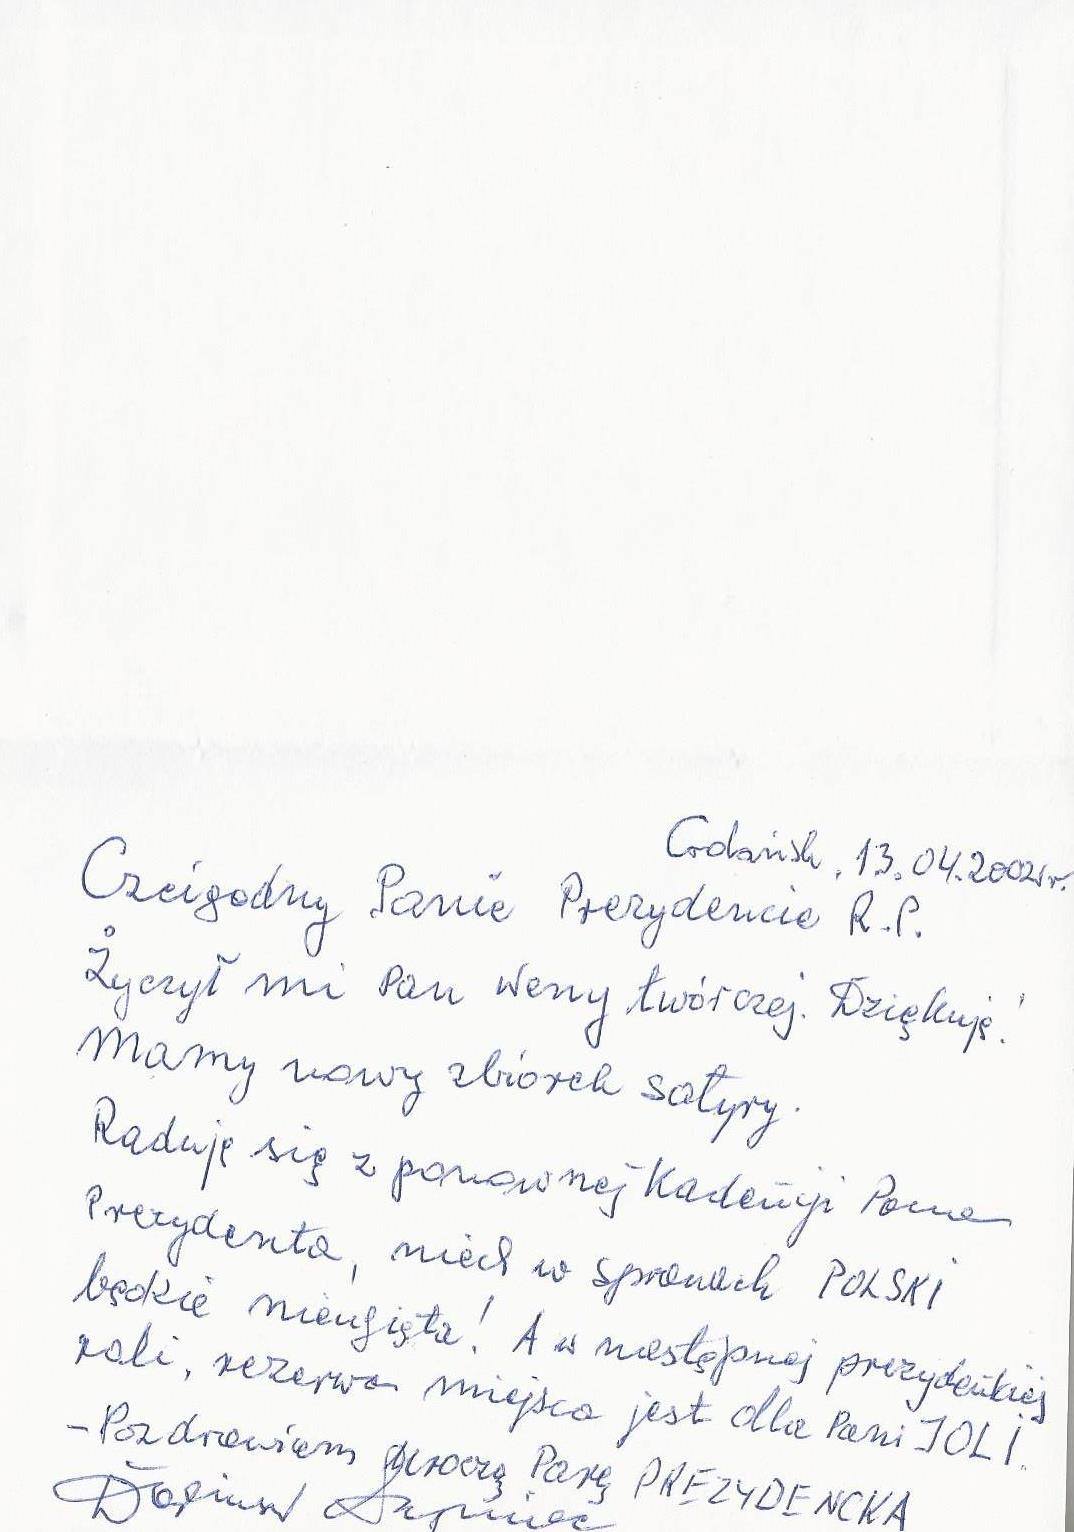 Gdańsk, 13.04.2002r.
Czcigodny Panie Prezydencie R.P.
Życzył mi Pan weny twórczej. Dziękuję!
Mamy nowy zbiorek satyry.
Raduję się z ponownej Kadencji Pana
Prezydenta, niech w sprawach POLSKI
będzie nieugięta! A w następnej prezydenckiej
roli, rezerwa miejsca jest dla Pani JOLI.
- Pozdrawiam uroczą Parę PREZYDENCKA
Dariusz